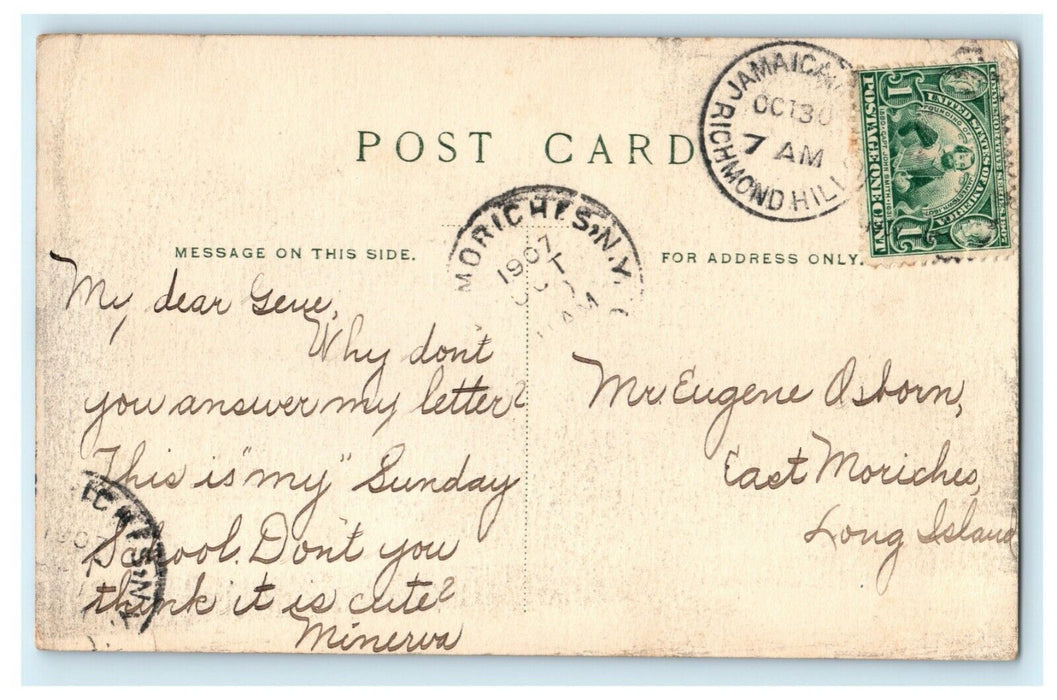 POST CARD
MESSAGE ON THIS SIDE.
FOR ADDRESS ONLY.
JAMAICA
OCT 30
7 AM
RICHMOND HILL
COMMEMORATIVE SERIES 1907
UNITED STATES OF AMERICA
FOUNDING OF
1580 CAPT. JOHN SMITH 1631
1 1
POSTAGE ONE CENT
MORICHES, N.Y.
1907
My dear Gene,
Why don't
you answer my letter?
This is "my" Sunday
School. Don't you
think it is cute?
Minerva
Mr. Eugene Osborn,
East Moriches,
Long Island
ICHES, N.Y.
1907